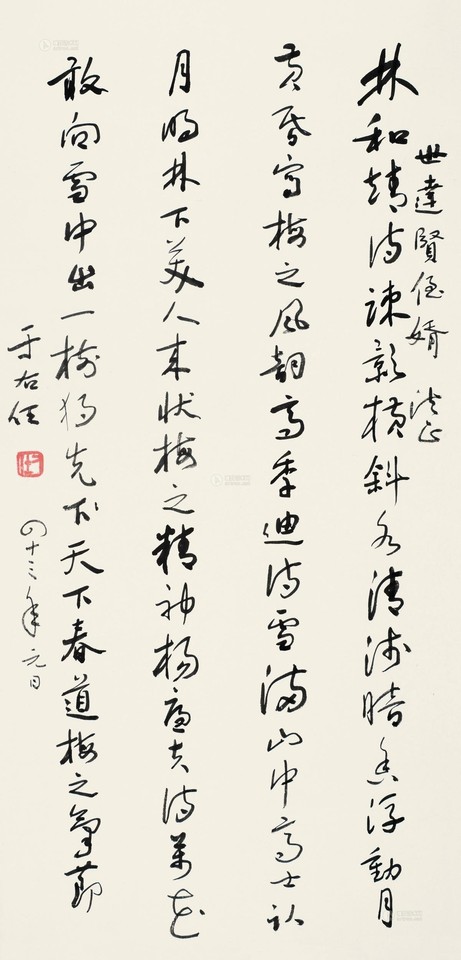 世達賢侄婿 法正
林和靖詩疎影横斜水清淺暗香浮動月
黄昏寫梅之風韻高季迪詩雪滿山中高士臥
月明林下美人來狀梅之精神楊廉夫詩萬花
敢向雪中出一樹獨先下天下春道梅之氣節
于右任
四十三年元日